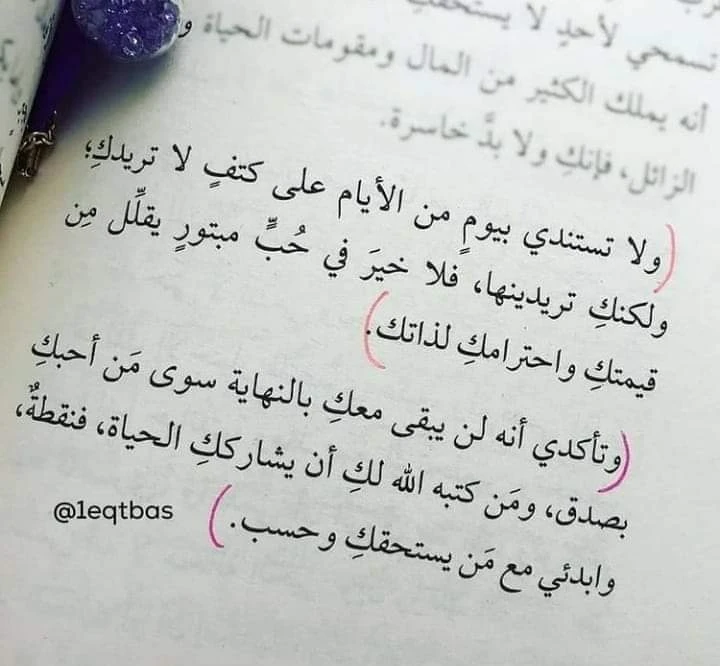 تسمحي لأحدٍ لا
أنه يملك الكثير من المال ومقومات الحياة و
الزائل، فإنكِ ولا بدَّ خاسرة.
(ولا تستندي بيومٍ من الأيام على كتفٍ لا تريدكِ؛
ولكنكِ تريدينها، فلا خيرَ في حُبٍّ مبتورٍ يقلِّل مِن
قيمتكِ واحترامكِ لذاتك.)
(وتأكدي أنه لن يبقى معكِ بالنهاية سوى مَن أحبكِ
بصدق، ومَن كتبه الله لكِ أن يشارككِ الحياة، فنقطةٌ،
وابدئي مع مَن يستحقكِ وحسب.)
@1eqtbas